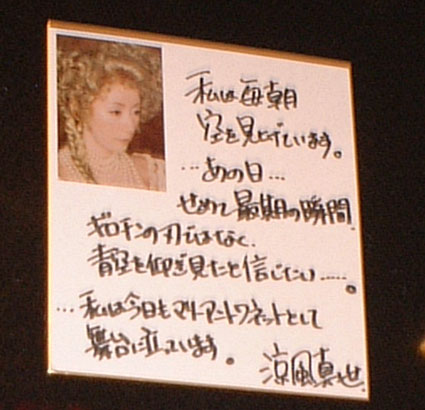 私は毎朝
空を見上げています。
…あの日…
せめて最期の瞬間
ギロチンの刃ではなく、
青空を仰ぎ見たと信じたい……。
…私は今日もマリーアントワネットとして
舞台に立っています。
涼風真世